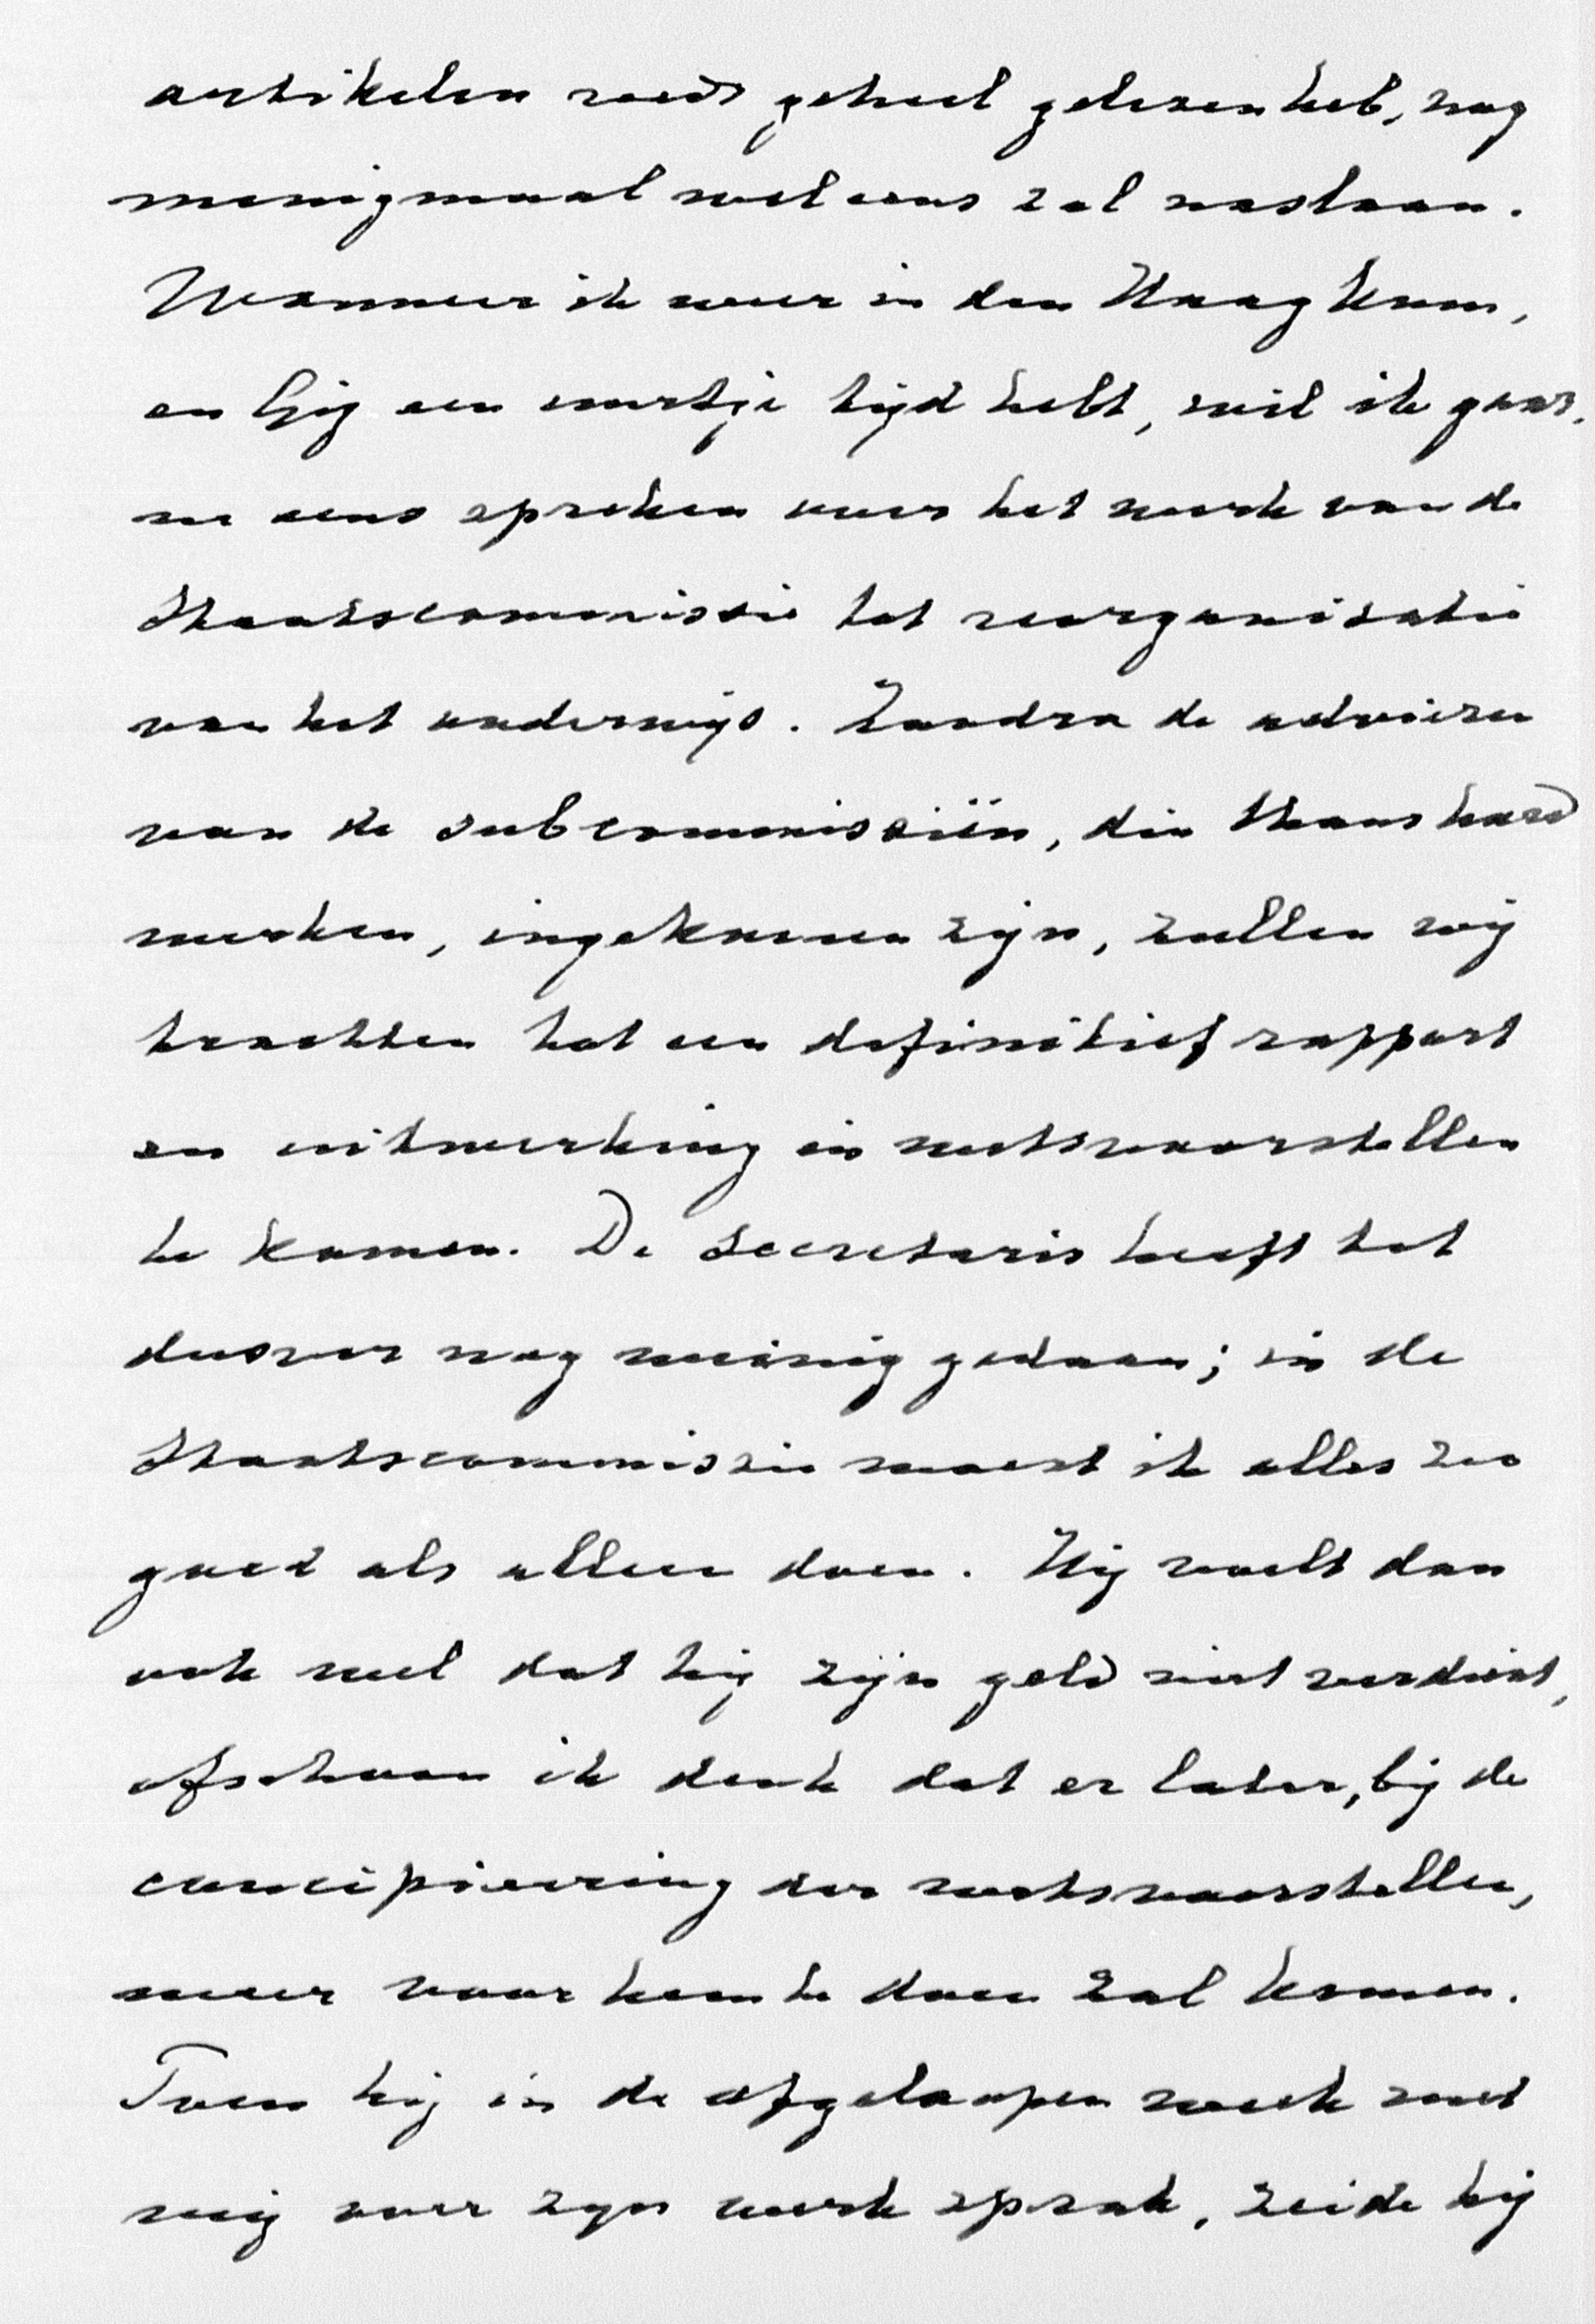 artikelen reeds geheel gelezen heb, nog
menigmaal wel eens zal naslaan.
Wanneer ik weer in den Haag kom,
en Gij een uurtje tijd hebt, wil ik gaar-
ne eens spreken over het werk van de
Staatscommissie tot reorganisatie
van het onderwijs. Zoodra de adviezen
van de subcommissiën, die thans hard
werken, ingekomen zijn, zullen wij
trachten tot een definitief rapport
en uitwerking in wetsvoorstellen
te komen. De Secretaris heeft tot
dusver nog weinig gedaan; in de
Staatscommissie moest ik alles zoo
goed als alleen doen. Hij voelt dan
ook wel dat hij zijn geld niet verdient,
ofschoon ik denk dat er later, bij de
concipieering der wetsvoorstellen,
meer voor hem te doen zal komen.
Toen hij in de afgeloopen week met
mij over zijn werk sprak, zeide hij